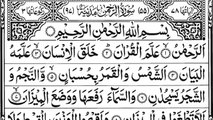 (٥٥) سُورَةُ الرَّحْمٰنِ مَدَنِيَّةٌ (٩٧)
بِسْمِ اللهِ الرَّحْمٰنِ الرَّحِيْمِ
اَلرَّحْمٰنُ عَلَّمَ الْقُرْاٰنَ خَلَقَ الْاِنْسَانَ عَلَّمَهُ
الْبَيَانَ اَلشَّمْسُ وَالْقَمَرُ بِحُسْبَانٍ وَّالنَّجْمُ وَ
الشَّجَرُ يَسْجُدٰنِ وَالسَّمَآءَ رَفَعَهَا وَوَضَعَ الْمِيْزَانَ